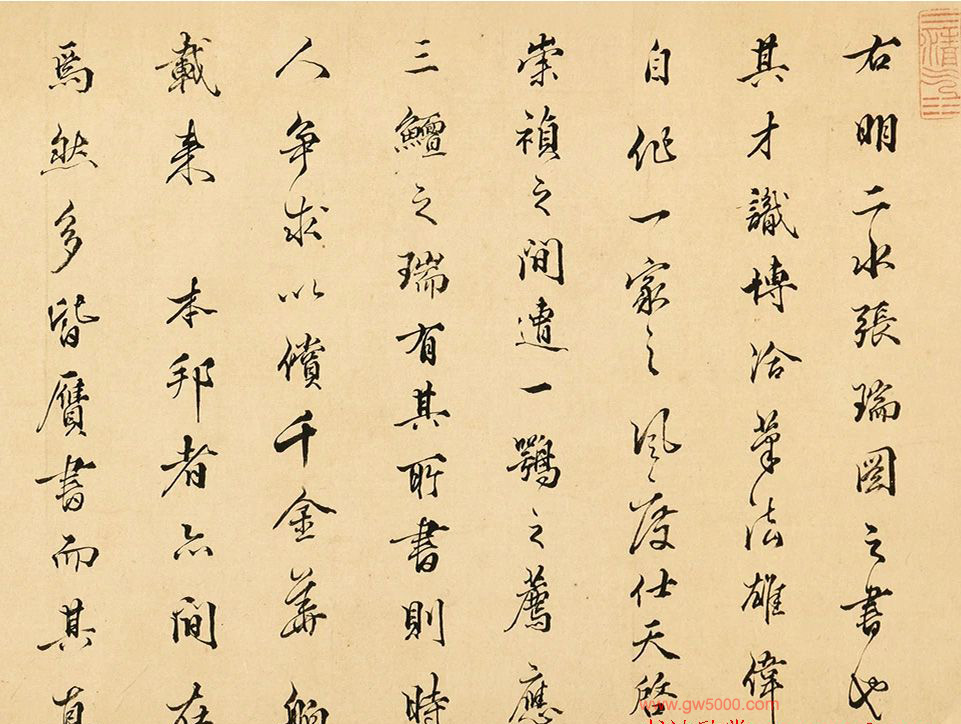 右明二水張瑞圖之書也
其才識博洽筆法雄偉
自作一家之風度仕天啓
崇禎之間遭一鶚之薦應
三鱣之瑞有其所書則時
人爭求以償千金舶
載来本邦者亦間在
焉然多皆贋書而其真
www.gw5000.com